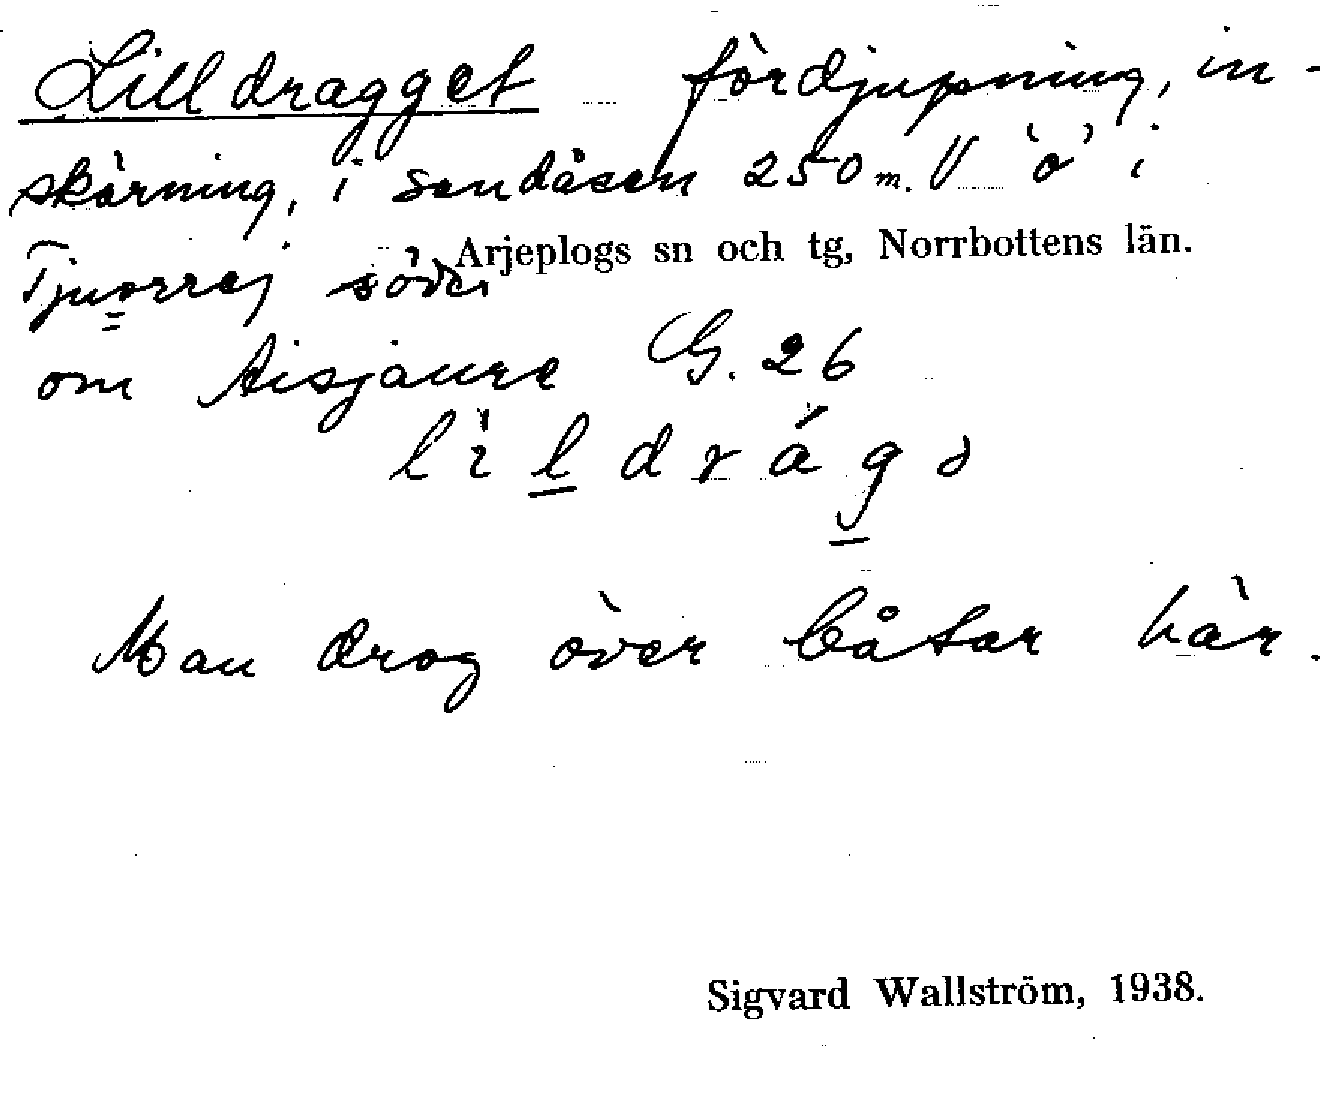 Lilldragget fördjupning, in-
skärning, i sandåsen 250 m. V 'o' i
Arjeplogs sn och tg, Norrbottens län.
Tjuorrej söder
om Aisjaure G. 26
lìldrág
Man drog över båtar här.
Sigvard Wallström, 1938.